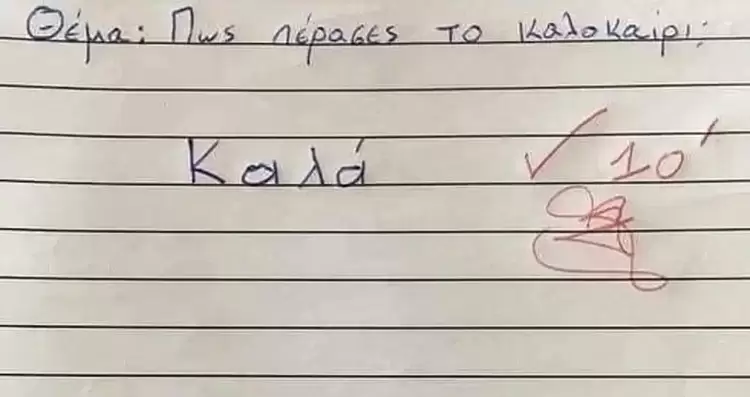 Θέμα: Πως πέρασες το καλοκαίρι;
Καλά
✓ 10'